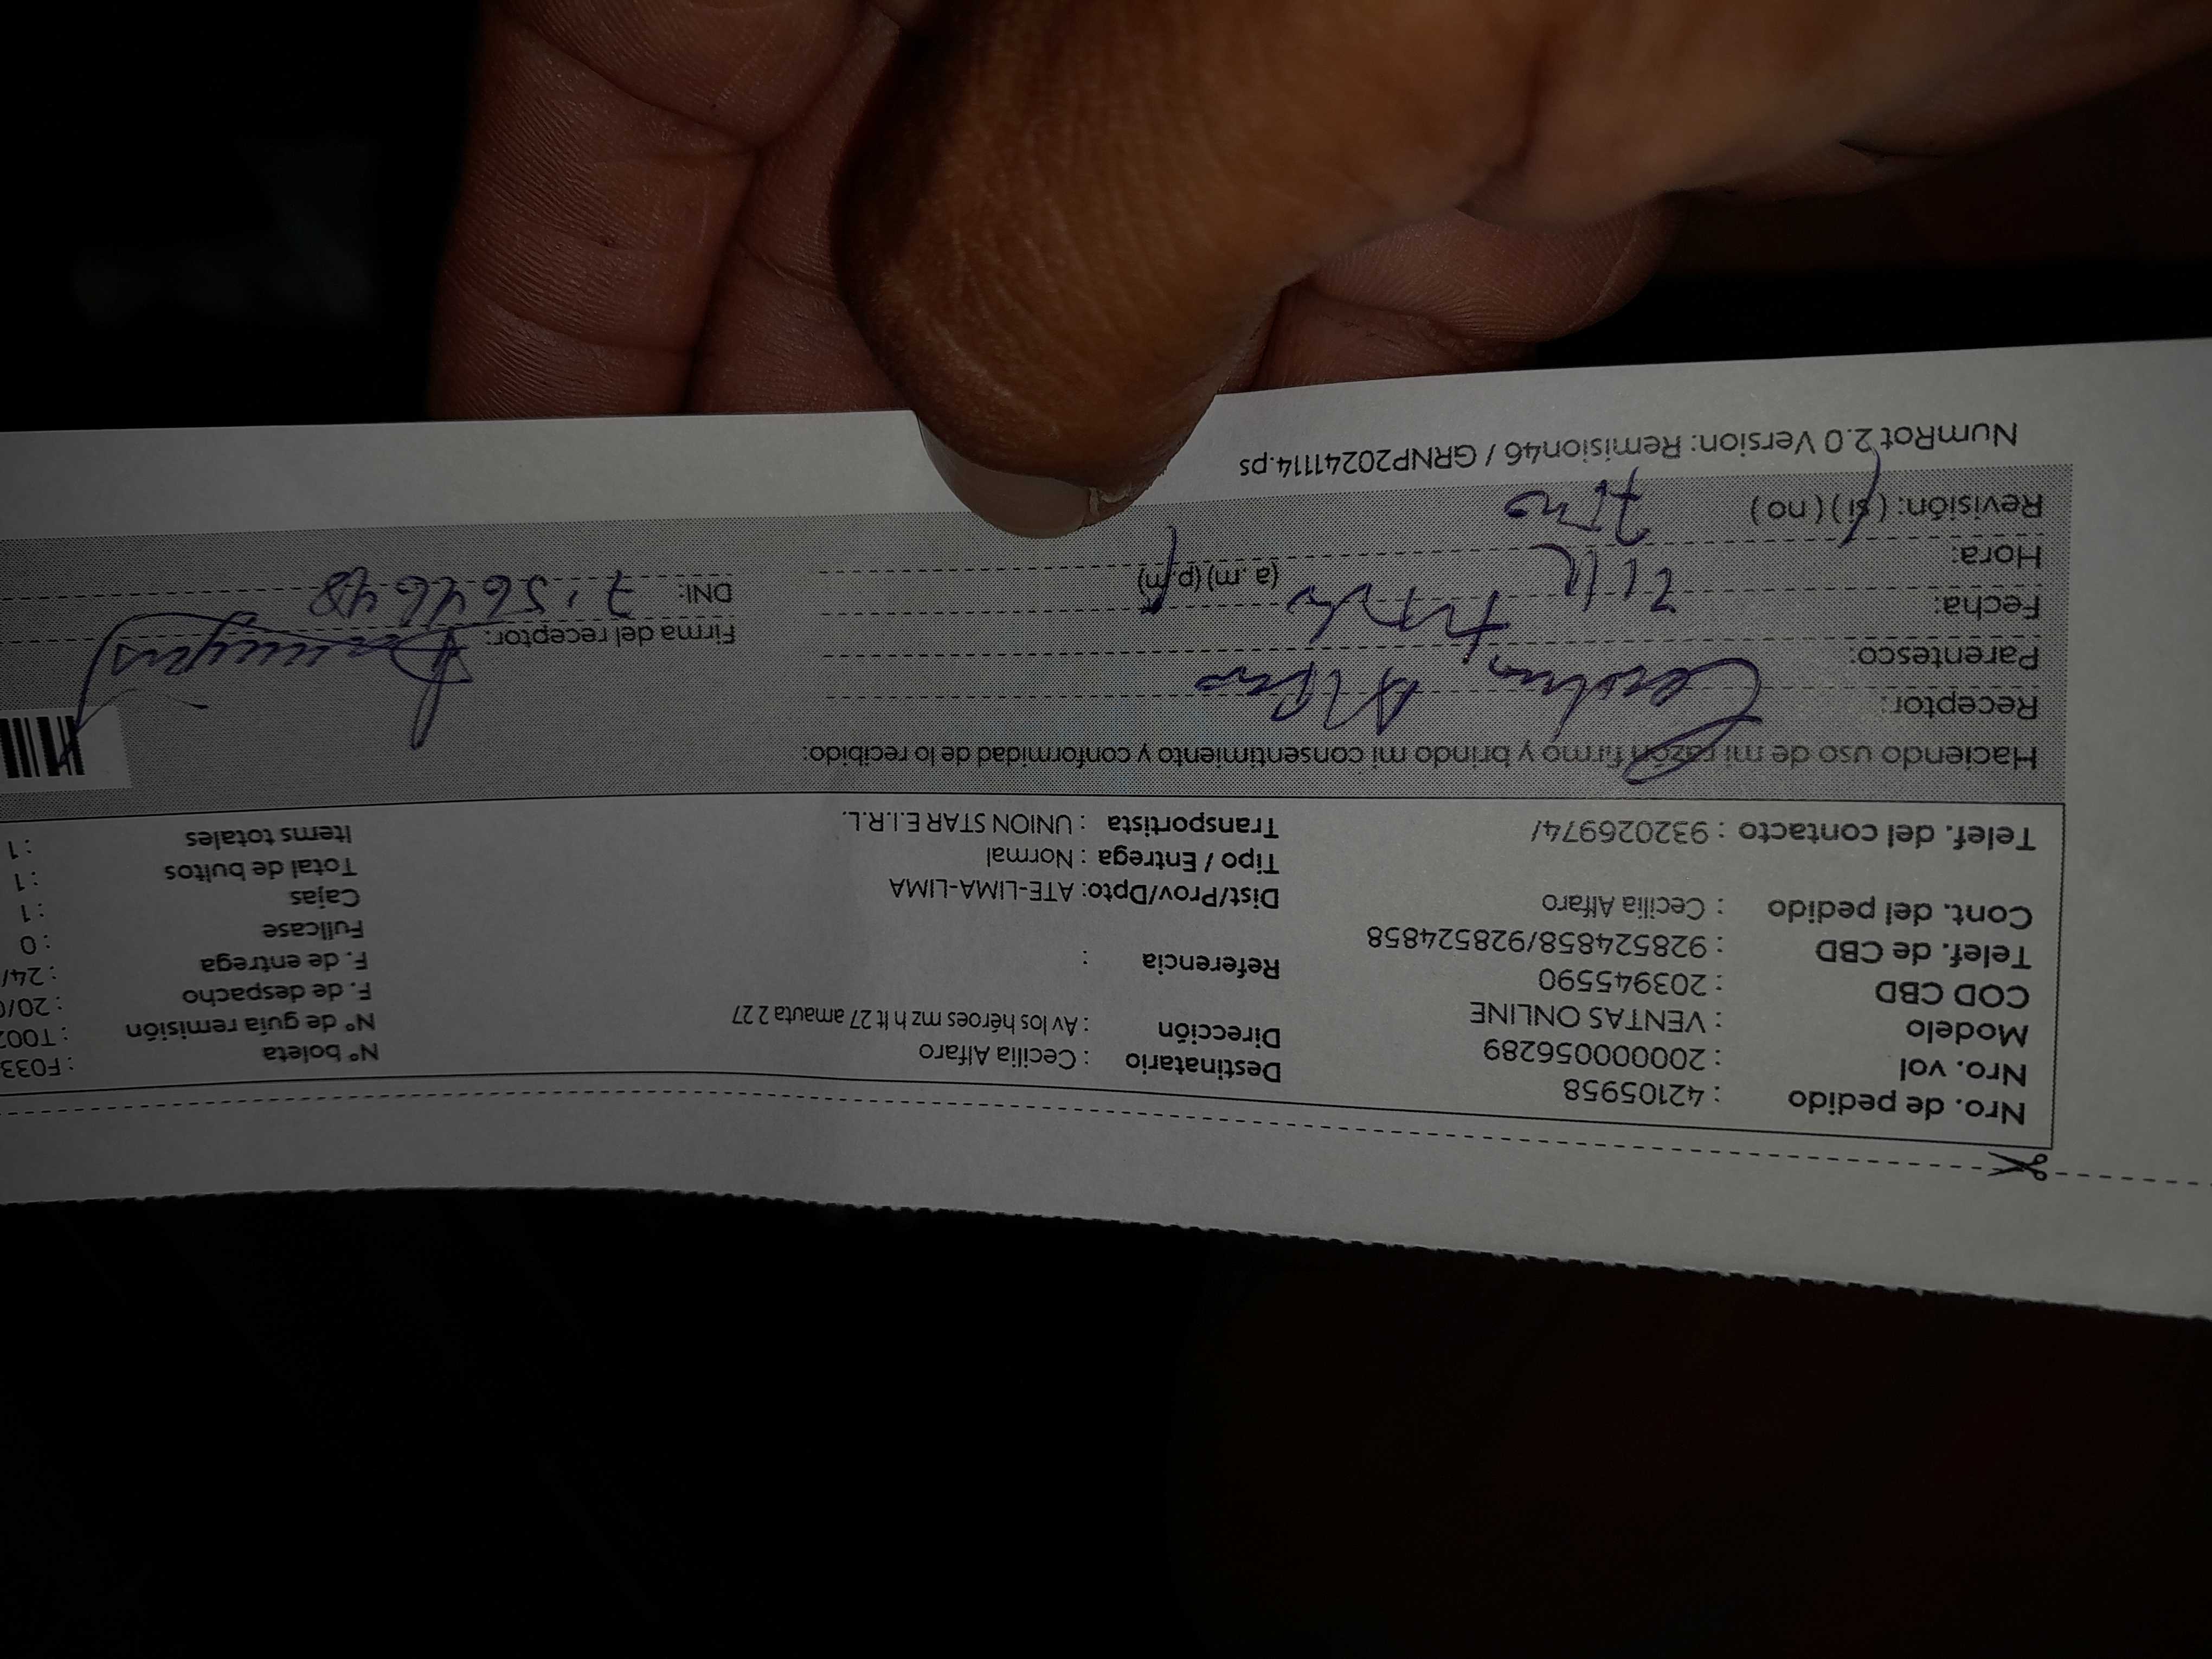 Nro. de pedido : 42105958
Nro. vol : 20000056289
Modelo : VENTAS ONLINE
COD CBD : 203945590
Telef. de CBD : 928524858/928524858
Cont. del pedido : Cecilia Alfaro
Telef. del contacto : 932026974/
Destinatario : Cecilia Alfaro
Dirección : Av los héroes mz h lt 27 amauta 2 27
Referencia :
Dist/Prov/Dpto: ATE-LIMA-LIMA
Tipo / Entrega : Normal
Transportista : UNION STAR E.I.R.L.
N° boleta : F033
N° de guía remisión : T002
F. de despacho : 20/0
F. de entrega : 24/
Fullcase : 0
Cajas : 1
Total de bultos : 1
Items totales : 1
Haciendo uso de mi razón firmo y brindo mi consentimiento y conformidad de lo recibido:
Receptor:
Parentesco:
Fecha:
Hora: (a.m) (p.m)
Revisión: (si) (no)
Firma del receptor:
DNI:
NumRot 2.0 Version: Remision46 / GRNP20241114.ps